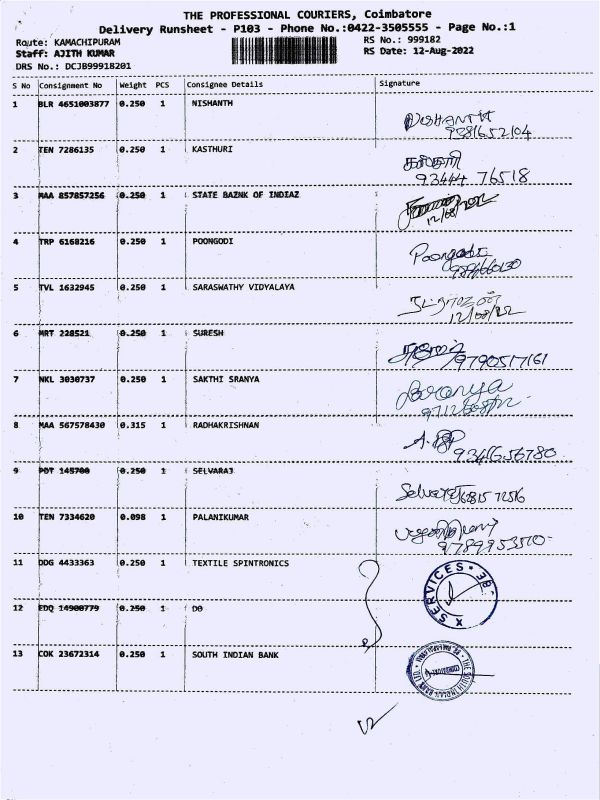 THE PROFESSIONAL COURIERS, Coimbatore
Delivery Runsheet - P103 - Phone No.:0422-3505555 - Page No.:1
Route: KAMACHIPURAM RS No.: 999182
Staff: AJITH KUMAR RS Date: 12-Aug-2022
DRS No.: DCJB99918201
S No Consignment No Weight PCS Consignee Details Signature
1 BLR 4651003877 0.250 1 NISHANTH
NISHANTH
9381652104
2 TEN 7286135 0.250 1 KASTHURI
93444 76518
3 MAA 857857256 0.250 1 STATE BAZNK OF INDIAZ
12/08/22
4 TRP 6168216 0.250 1 POONGODI
Poongodi
5 TVL 1632945 0.250 1 SARASWATHY VIDYALAYA
12/08/22
6 MRT 228521 0.250 1 SURESH
9790517161
7 NKL 3030737 0.250 1 SAKTHI SRANYA
Saranya
8 MAA 567578430 0.315 1 RADHAKRISHNAN
9 PDT 145700 0.250 1 SELVARAJ
Selvaraj
10 TEN 7334620 0.098 1 PALANIKUMAR
9789953510
11 DDG 4433363 0.250 1 TEXTILE SPINTRONICS
SERVICES * 3B * X
12 EDQ 14900779 0.250 1 DO
13 COK 23672314 0.250 1 SOUTH INDIAN BANK
THE SOUTH INDIAN BANK LTD.